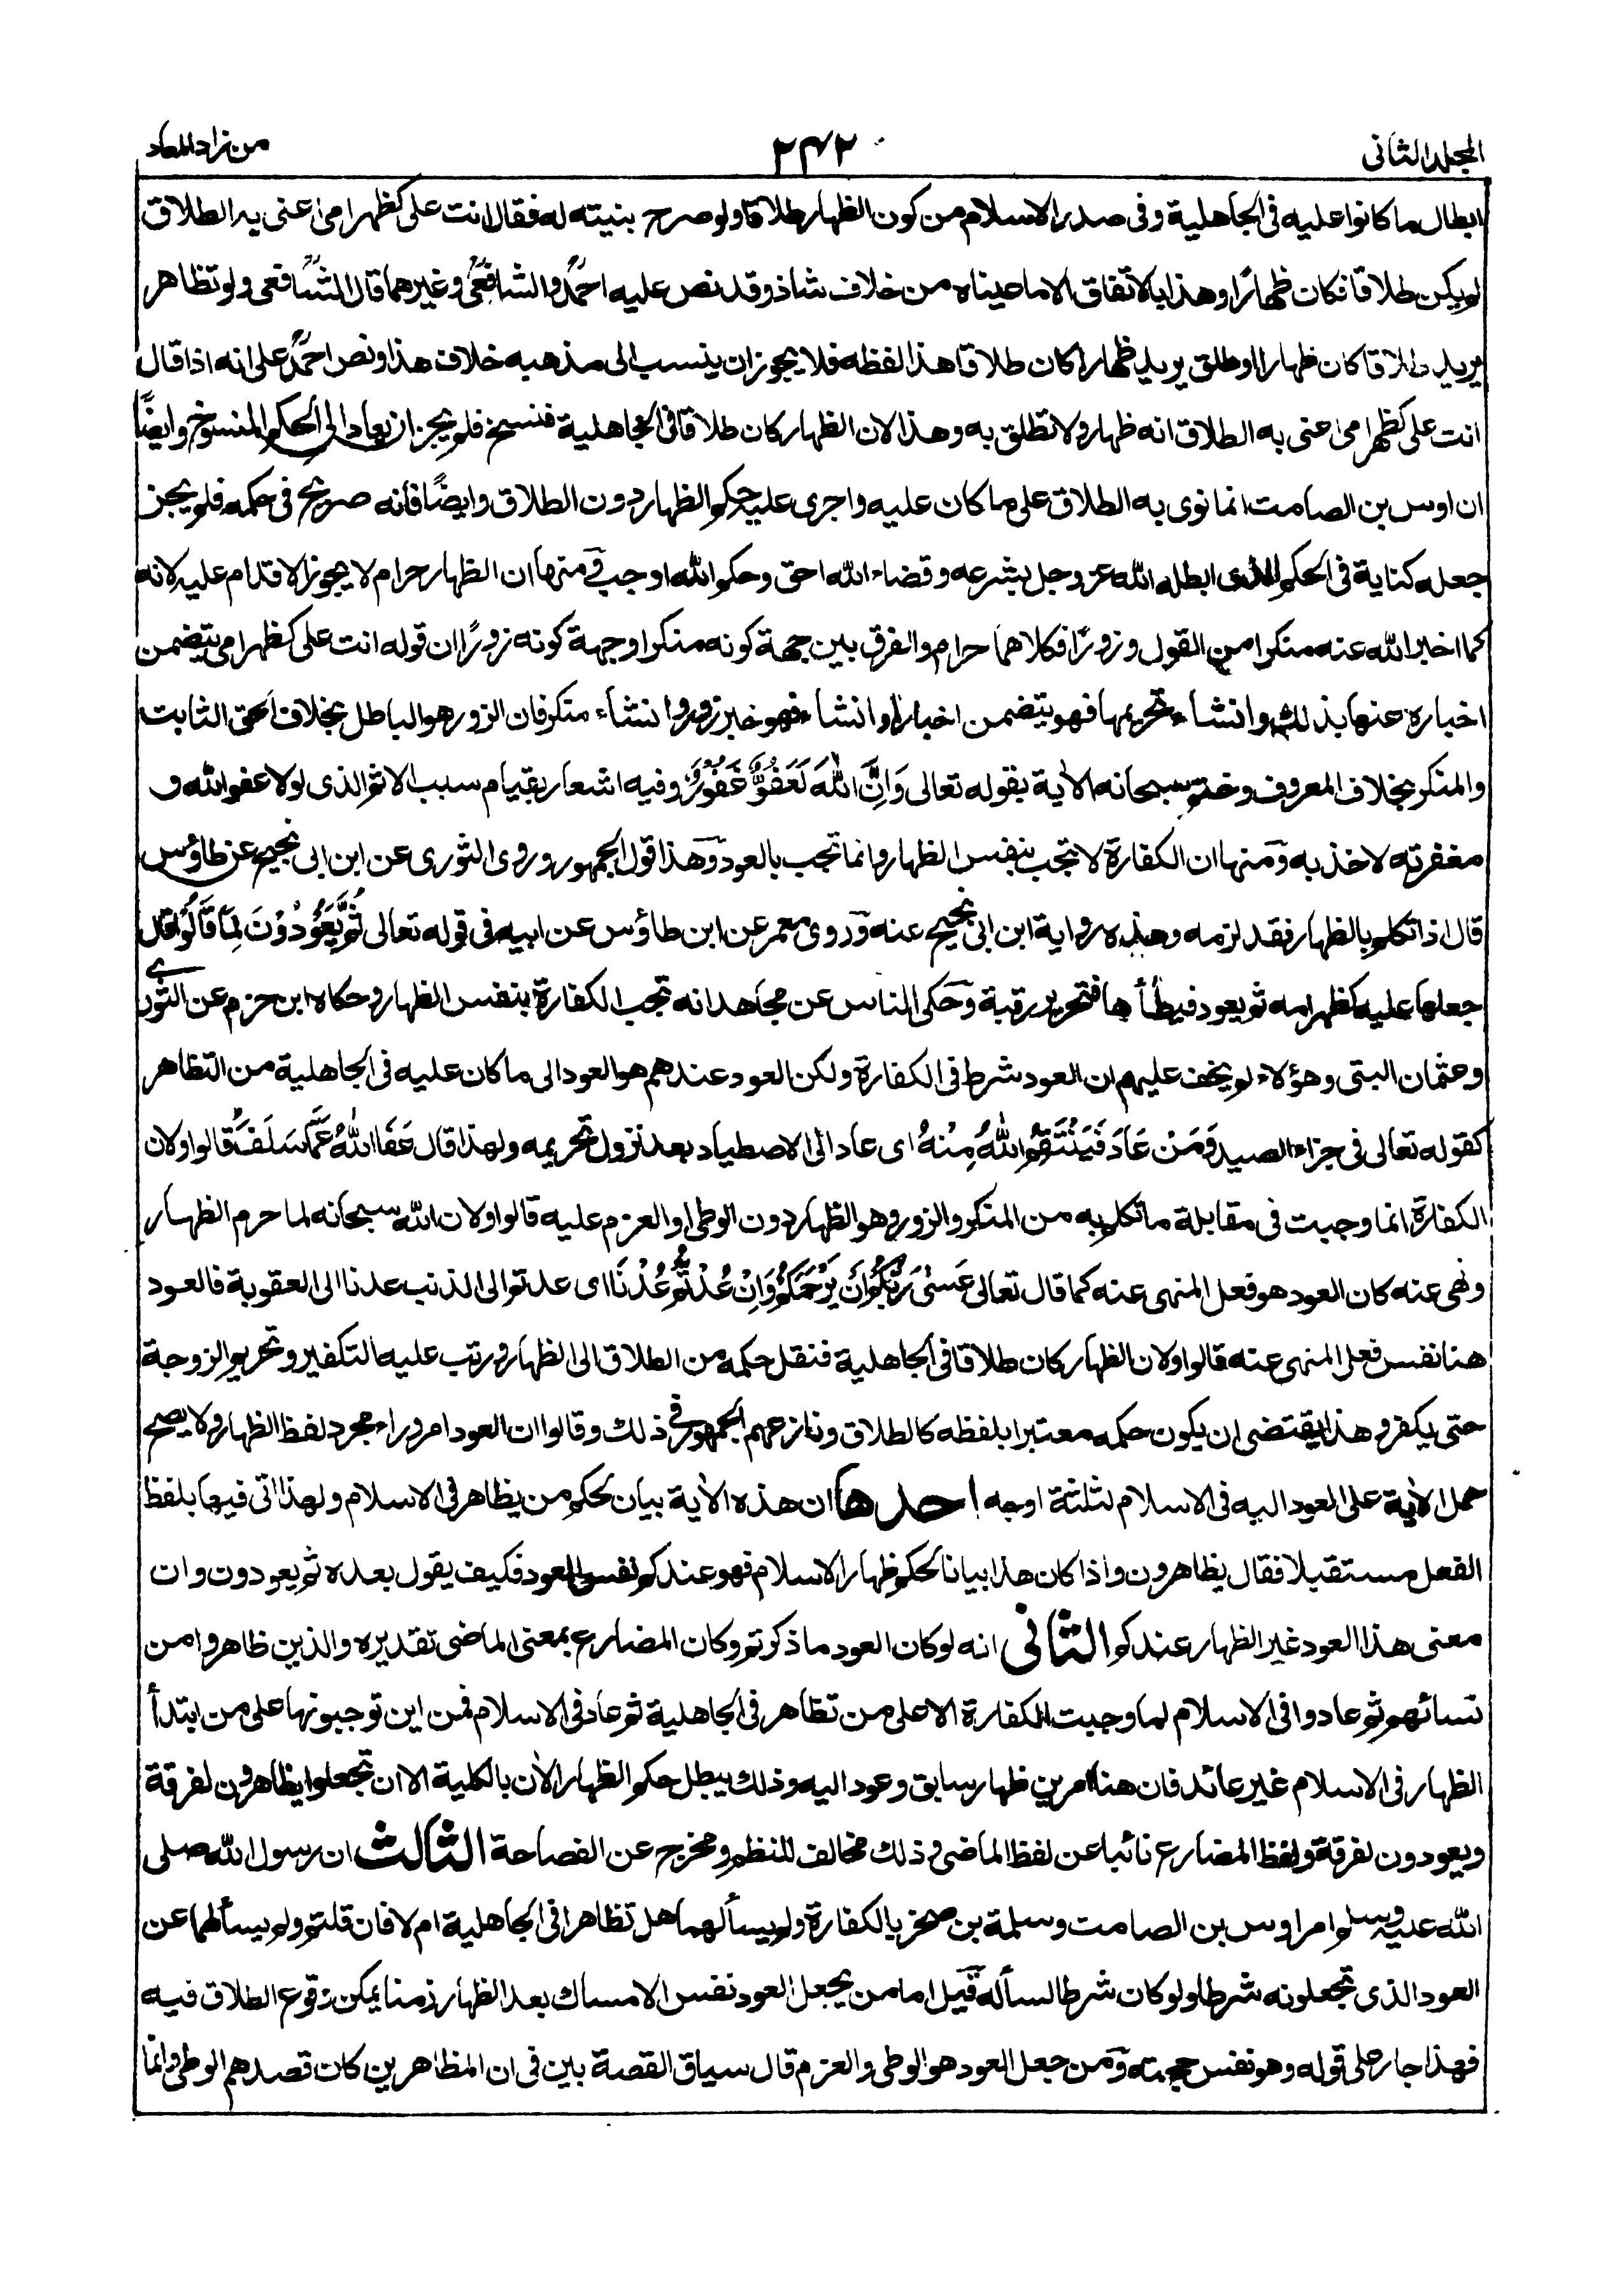 المجلد الثانى
٢٤٢
من زاد المعاد
ابطال ما كانوا عليه فى الجاهلية وفى صدر الاسلام من كون الظهار طلاقا ولو صرح بنيته له فقال انت على كظهر امى اعنى به الطلاق
لم يكن طلاقا فكان ظهارًا وهذا بالاتفاق الا ما عيناه من خلاف شاذ وقد نص عليه احمدؒ والشافعىؒ وغيرهما قال الشافعىؒ ولو تظاهر
يريد طلاقا كان ظهارا او طلق يريد ظهارا كان طلاقا هذا لفظه فلا يجوز ان ينسب الى مذهبه خلاف هذا ونص احمدؒ على انه اذا قال
انت على كظهر امى اعنى به الطلاق انه ظهار ولا تطلق به وهذا لان الظهار كان طلاقا فى الجاهلية فنسخ فلم يجز ان يعاد الى الحكم المنسوخ وايضًا
ان اوس بن الصامت انما نوى به الطلاق على ما كان عليه واجرى عليه حكم الظهار دون الطلاق وايضًا فانه صريح فى حكمه فلم يجز
جعله كناية فى الحكم الذى ابطله الله عز وجل بشرعه وقضاء الله احق وحكم الله اوجب ومنها ان الظهار حرام لا يجوز الاقدام عليه لانه
كما اخبر الله عنه منكرا من القول وزورًا فكلاهما حرام والفرق بين جهة كونه منكرا وجهة كونه زورًا ان قوله انت على كظهر امى يتضمن
اخباره عنها بذلك وانشاء تحريمها فهو يتضمن اخبارا وانشاء فهو خبر زور وانشاء منكر فان الزور هو الباطل بخلاف الحق الثابت
والمنكر بخلاف المعروف وختم سبحانه الاٰية بقوله تعالى وَاِنَّ اللّٰهَ لَعَفُوٌّ غَفُوْرٌ وفيه اشعار بقيام سبب الاثم الذى لولا عفو الله و
مغفرته لاخذ به ومنها ان الكفارة لا تجب بنفس الظهار وانما تجب بالعود وهذا قول الجمهور وروى الثورى عن ابن ابى نجيح عن طاؤس
قال اذا تكلم بالظهار فقد لزمه وهذه رواية ابن ابى نجيح عنه وروى معمر عن ابن طاؤس عن ابيه فى قوله تعالى ثُمَّ يَعُوْدُوْنَ لِمَا قَالُوْا قال
جعلها عليه كظهر امه ثم يعود فيطأها فتحرير رقبة وحكى الناس عن مجاهد انه تجب الكفارة بنفس الظهار وحكاه ابن حزم عن الثورى
وعثمان البتى وهؤلاء لم يخف عليهم ان العود شرط فى الكفارة ولكن العود عندهم هو العود الى ما كان عليه فى الجاهلية من التظاهر
كقوله تعالى فى جزاء الصيد وَمَنْ عَادَ فَيَنْتَقِمُ اللّٰهُ مِنْهُ اى عاد الى الاصطياد بعد نزول تحريمه ولهذا قال عَفَا اللّٰهُ عَمَّا سَلَفَ قالوا ولان
الكفارة انما وجبت فى مقابلة ما تكلم به من المنكر والزور وهو الظهار دون الوطى او العزم عليه قالوا ولان الله سبحانه لما حرم الظهار
ونهى عنه كان العود هو فعل المنهى عنه كما قال تعالى عَسٰى رَبُّكُمْ اَنْ يَّرْحَمَكُمْ وَاِنْ عُدْتُّمْ عُدْنَا اى عدتم الى الذنب عدنا الى العقوبة فالعود
هنا نفس فعل المنهى عنه قالوا ولان الظهار كان طلاقا فى الجاهلية فنقل حكمه من الطلاق الى الظهار ورتب عليه التكفير وتحريم الزوجة
حتى يكفر وهذا يقتضى ان يكون حكمه معتبرا بلفظه كالطلاق ونازعهم الجمهور فى ذلك وقالوا ان العود امر وراء مجرد لفظ الظهار ولا يصح
حمل الاٰية على العود اليه فى الاسلام لثلثة اوجه احدها ان هذه الاٰية بيان لحكم من يظاهر فى الاسلام ولهذا اتى فيها بلفظ
الفعل مستقبلا فقال يظاهرون واذا كان هذا بيانا لحكم ظهار الاسلام فهو عندكم نفس العود فكيف يقول بعده ثم يعودون وان
معنى هذا العود غير الظهار عندكم الثانى انه لو كان العود ما ذكرتم وكان المضارع بمعنى الماضى تقديره والذين ظاهروا من
نسائهم ثم عادوا فى الاسلام لما وجبت الكفارة الا على من تظاهر فى الجاهلية ثم عاد فى الاسلام فمن اين توجبونها على من ابتدأ
الظهار فى الاسلام غير عائد فان هنا امرين ظهار سابق وعود اليه وذلك يبطل حكم الظهار الاٰن بالكلية الا ان تجعلوا يظاهرون لفرقة
ويعودون لفرقة ولفظ المضارع نائبا عن لفظ الماضى وذلك مخالف للنظم ومخرج عن الفصاحة الثالث ان رسول الله صلى
الله عليه وسلم امر اوس بن الصامت وسلمة بن صخر بالكفارة ولم يسألهما هل تظاهرا فى الجاهلية ام لا فان قلتم ولم يسألهما عن
العود الذى تجعلونه شرطا ولو كان شرطا لسأله قيل اما من يجعل العود نفس الامساك بعد الظهار زمنا يمكن وقوع الطلاق فيه
فهذا جار على قوله وهو نفس حجته ومن جعل العود هو الوطى والعزم قال سياق القصة بين فى ان المظاهرين كان قصدهم الوطى وانما